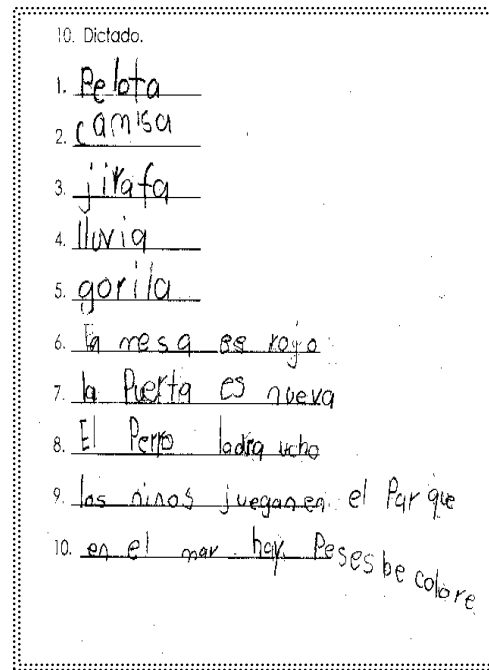 10. Dictado.
1. Pelota
2. camisa
3. jirafa
4. lluvia
5. gorila
6. la mesa es rojo
7. la Puerta es nueva
8. El Perro ladra ucho
9. los ninos juegan en el Parque
10. en el mar hay Peses be colore